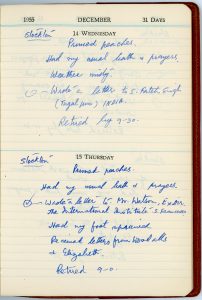 1955 DECEMBER 31 DAYS
Stockton 14 WEDNESDAY
Pruned peaches.
Had my usual bath & prayers.
Weather misty.
Wrote a letter to S. Fateh Singh
INDIA.
Retired by 9-30.
Stockton 15 THURSDAY
Pruned peaches.
Had my usual bath & prayers.
Wrote a letter to Mr Watson,
the International Institute S. Francisco
Had my foot
Received letters from
& Elizabeth.
Retired 9-0.